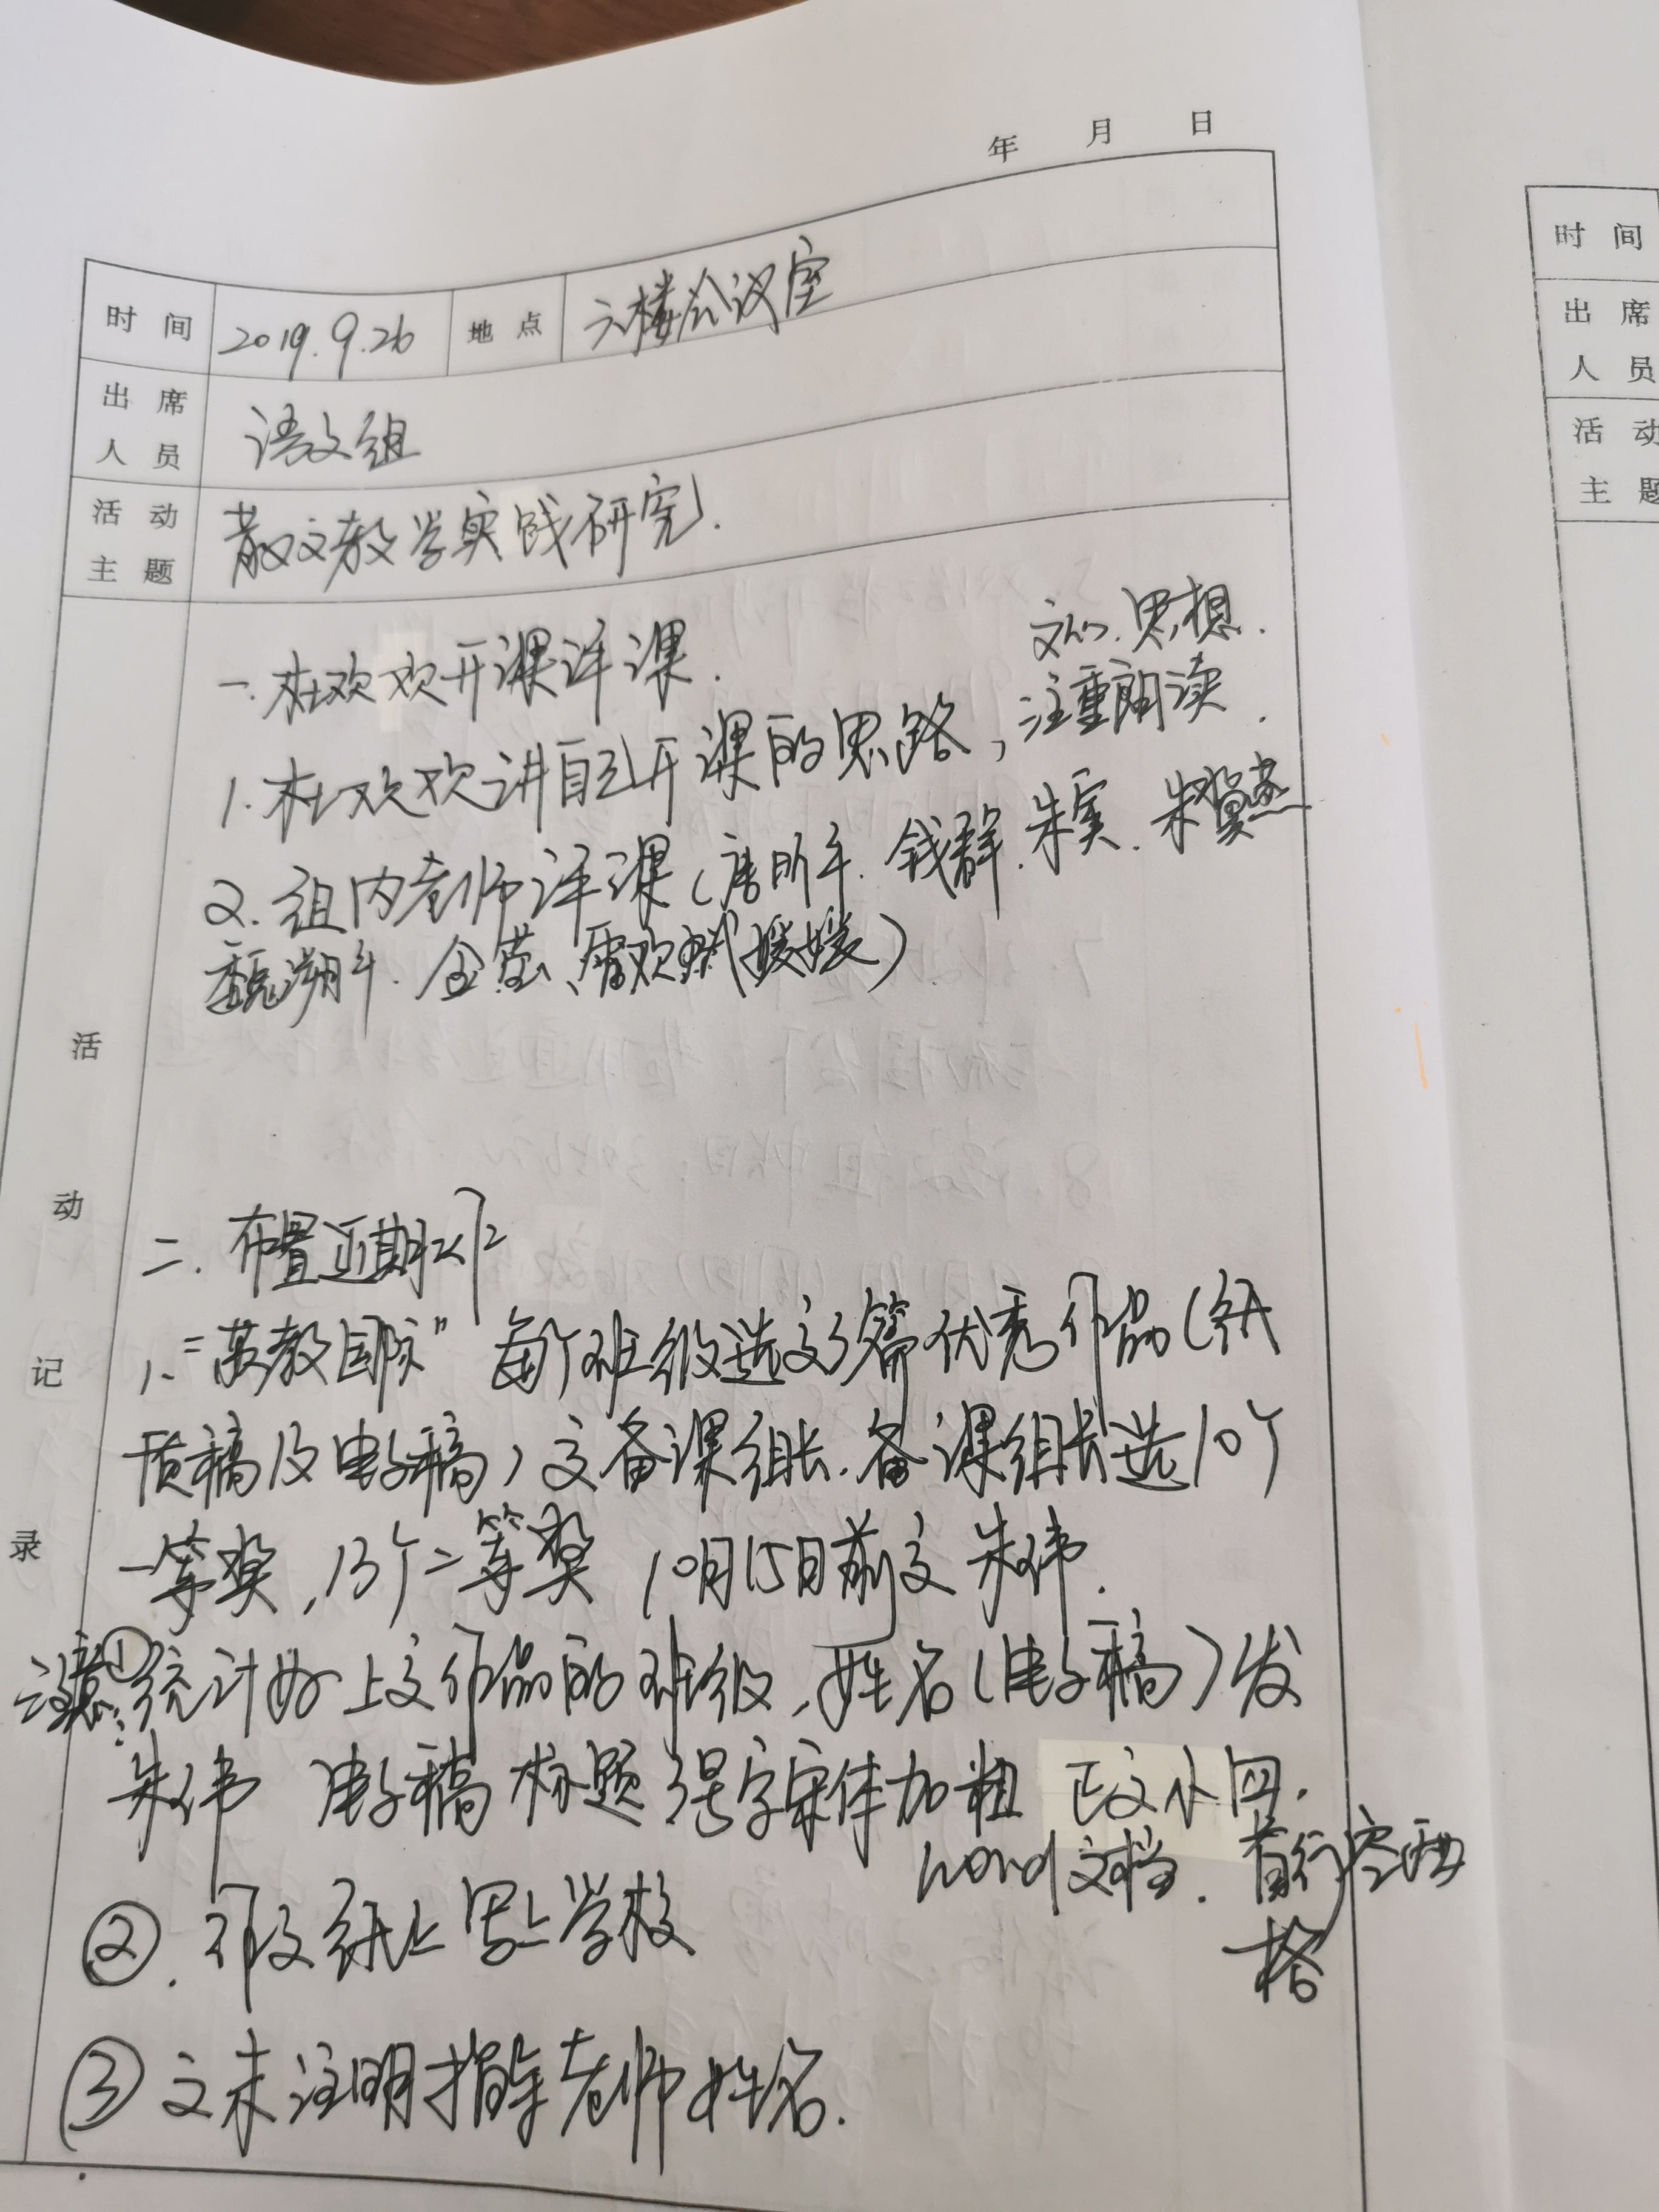 年 月 日
时间 2019.9.26 地点 六楼会议室
出席人员 语文组
活动主题 散文教学实践研究.
活动记录
一.杜欢欢开课评课.
文心.思想.
1.杜欢欢讲自己开课的思路,注重朗读.
2.组内老师评课(唐昕年.钱群.朱寅.朱冀燕
魏溯年.金莹、 媛媛)
二.布置近期工作
1."英教国际"每个班级选交3篇优秀作品(纸
质稿及电子稿)交备课组长.备课组长选10个
一等奖,13个二等奖 10月15日前交朱伟.
注意:①统计好上交作品的班级,姓名(电子稿)发
朱伟 电子稿标题 号字宋体加粗 正文小四.
word文档.首行空两
格
②.作文纸上写上学校
③文末注明指导老师姓名.
时间
出席
人员
活动
主题